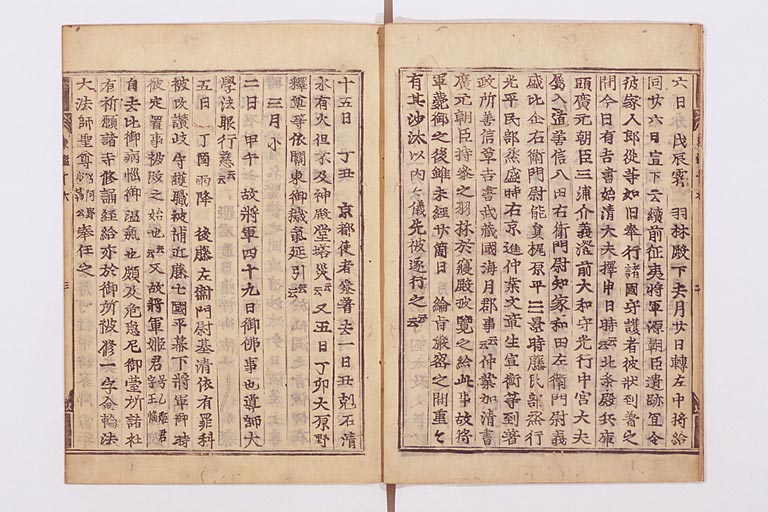 六日 戊辰 霽 羽林殿下去月廿日轉左中將給
同廿六日宣下云續前征夷將軍源朝臣遺跡宜令
彼家人郎從等如舊奉行諸國守護者彼狀到著之
間今日有吉書始淸大夫擇申日時云云北条殿兵庫
頭廣元朝臣三浦介義澄前大和守光行中宮大夫
屬入道善信八田右衛門尉知家和田左衛門尉義
盛比企右衛門尉能員梶原平三景時藤民部丞行
光平民部丞盛時右京進仲業文章生宣衡等列著
政所善信草吉書武藏國海月郡事云云仲業加淸書
廣元朝臣持參之羽林於寢殿故覽之給此事故將
軍薨御之後雖未經廿箇日 綸旨嚴密之間重々
有其沙汰以內々儀先被遂行之云云
十五日 丁丑 京都使者參著去一日丑剋石淸
水有火但不及神殿堂塔災云云又五日丁卯大原野
釋奠等依關東御穢氣延引云云
三月小
二日 甲午 故將軍四十九日御佛事也導師大
學法眼行慈云云
五日 丁酉 雨降 後藤左衛門尉基淸依有罪科
被改讚岐守護職被補近藤七國平幕下將軍御時
被定置事被改之始也云云又故將軍姬君
自去比御病惱御溫氣也頗及危急尼御臺所諸社
有祈願諸寺修誦經給亦於御所被修一字金輪法
大法師聖尊 奉仕之